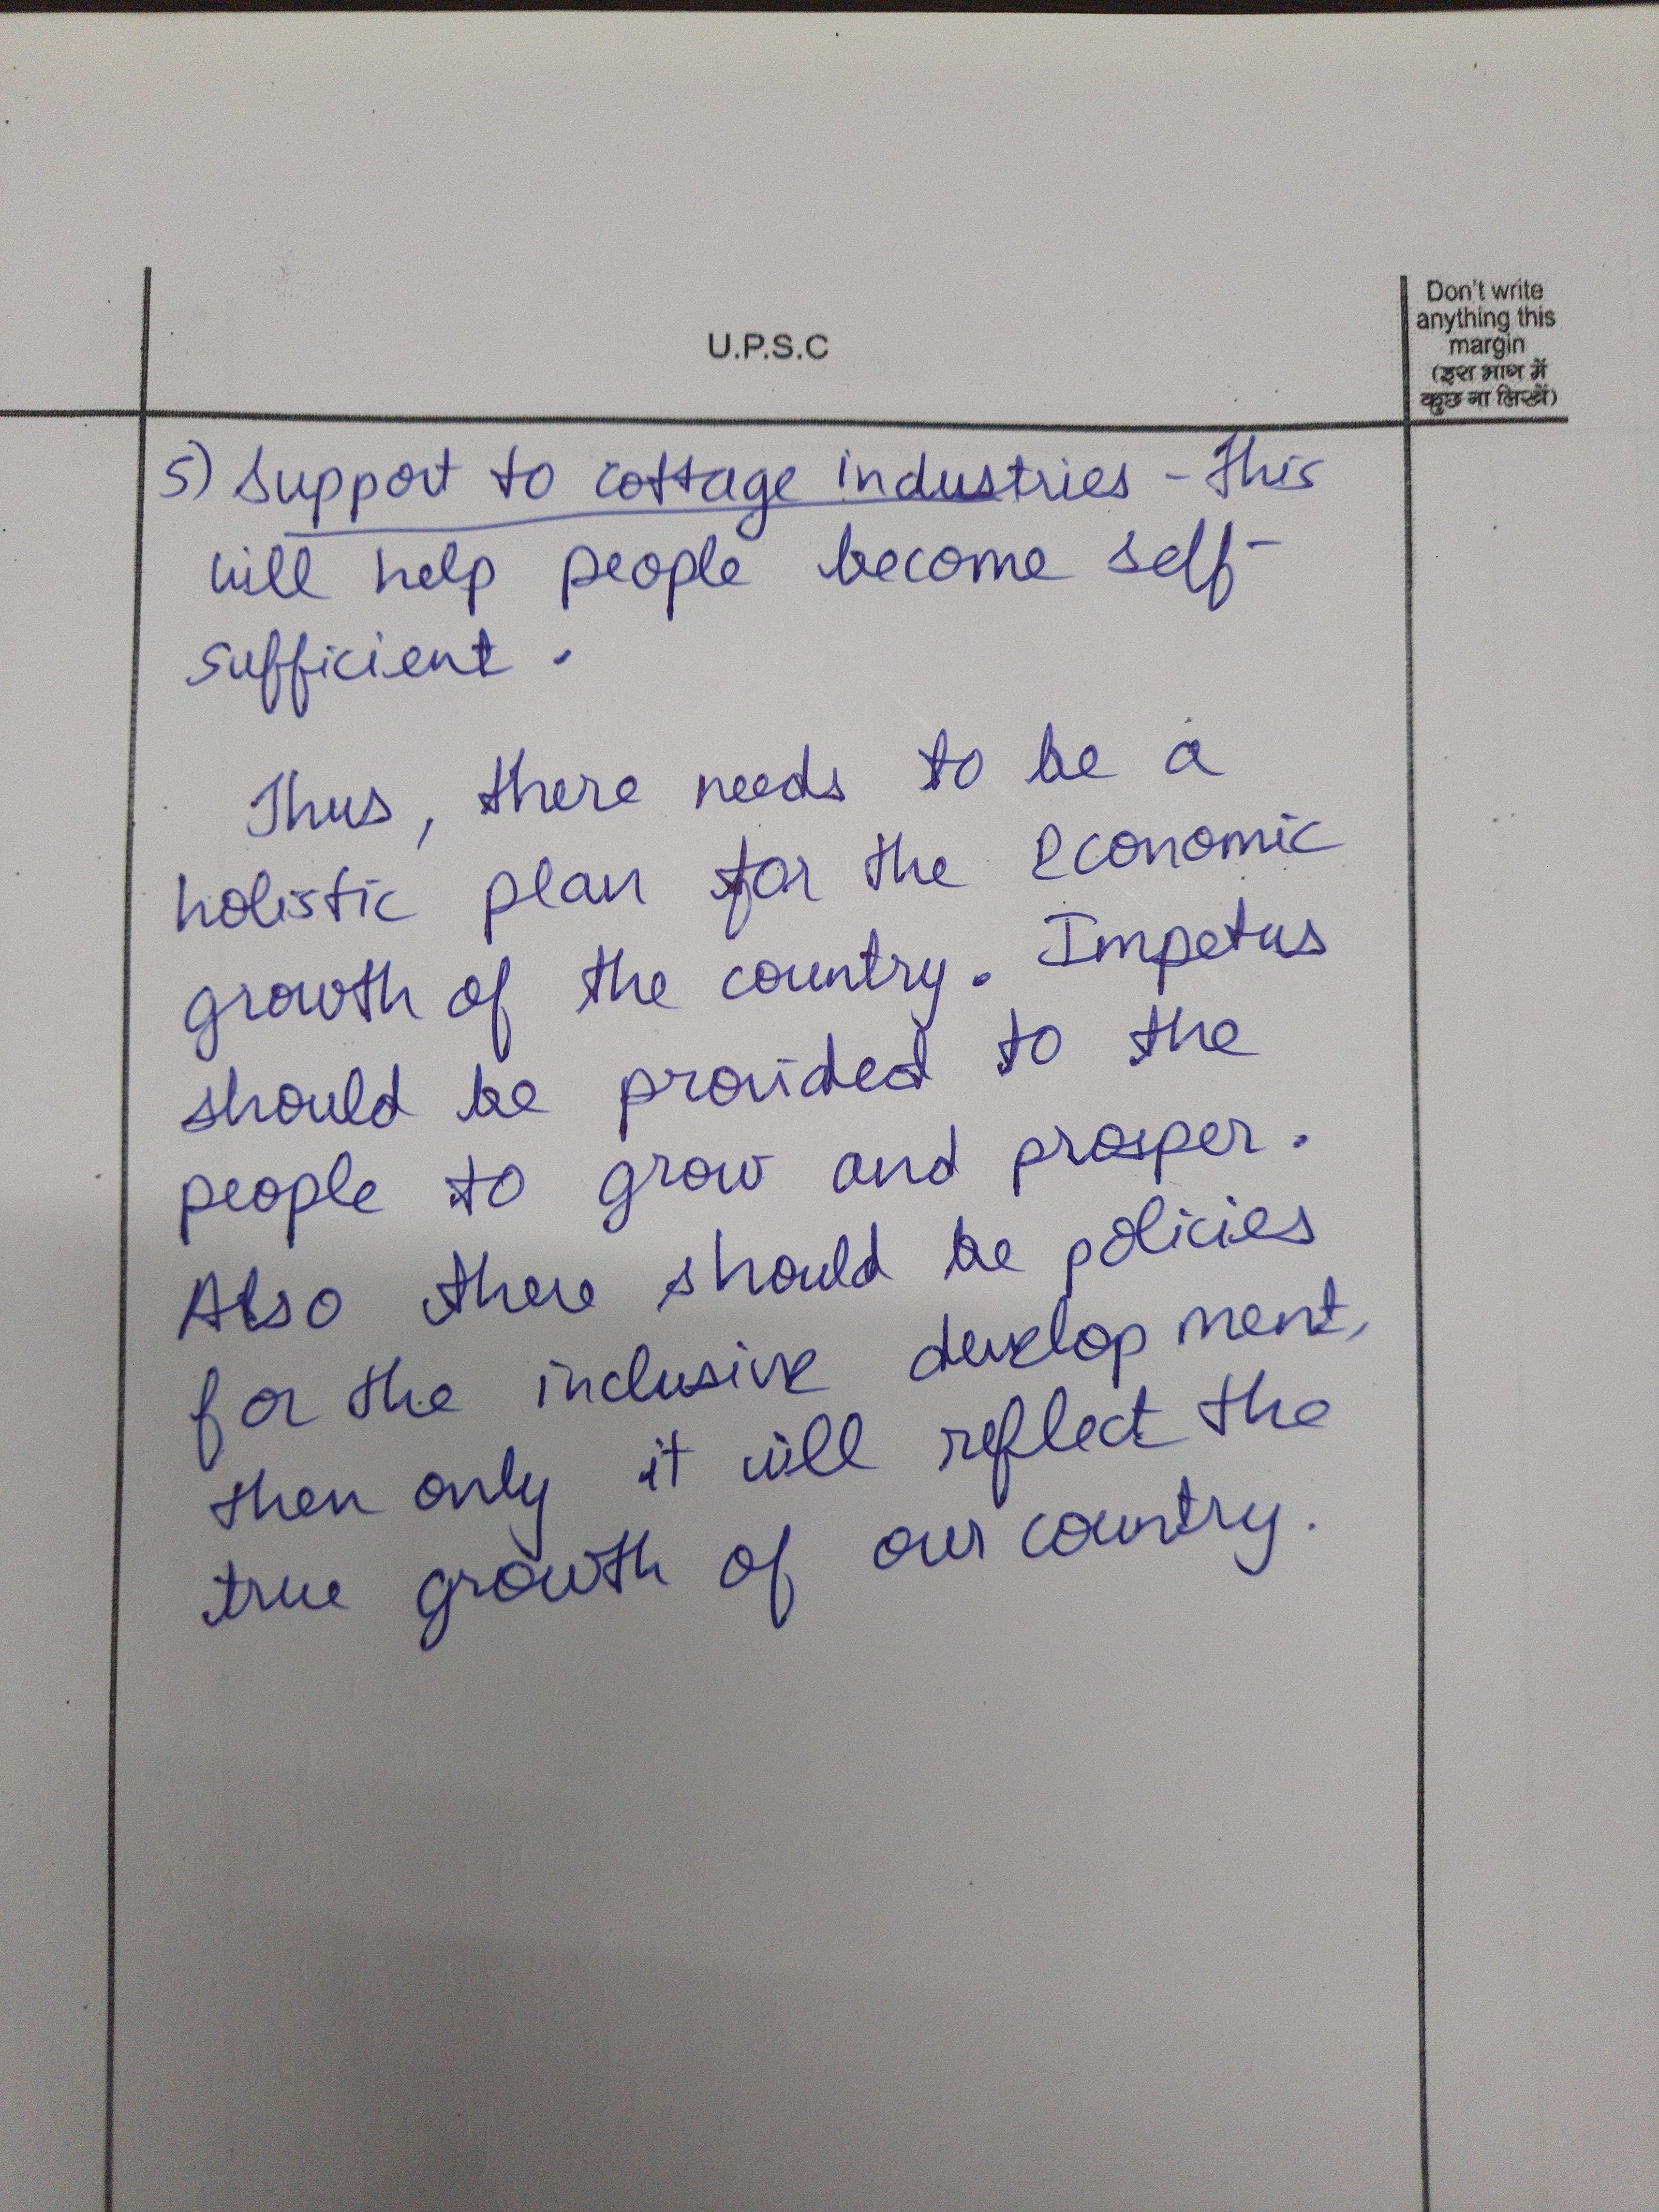 U.P.S.C
Don't write
anything this
margin
(इस भाग में
कुछ ना लिखें)
5) Support to cottage industries - This
will help people become self-
sufficient.
Thus, there needs to be a
holistic plan for the economic
growth of the country. Impetus
should be provided to the
people to grow and prosper.
Also there should be policies
for the inclusive development,
then only it will reflect the
true growth of our country.